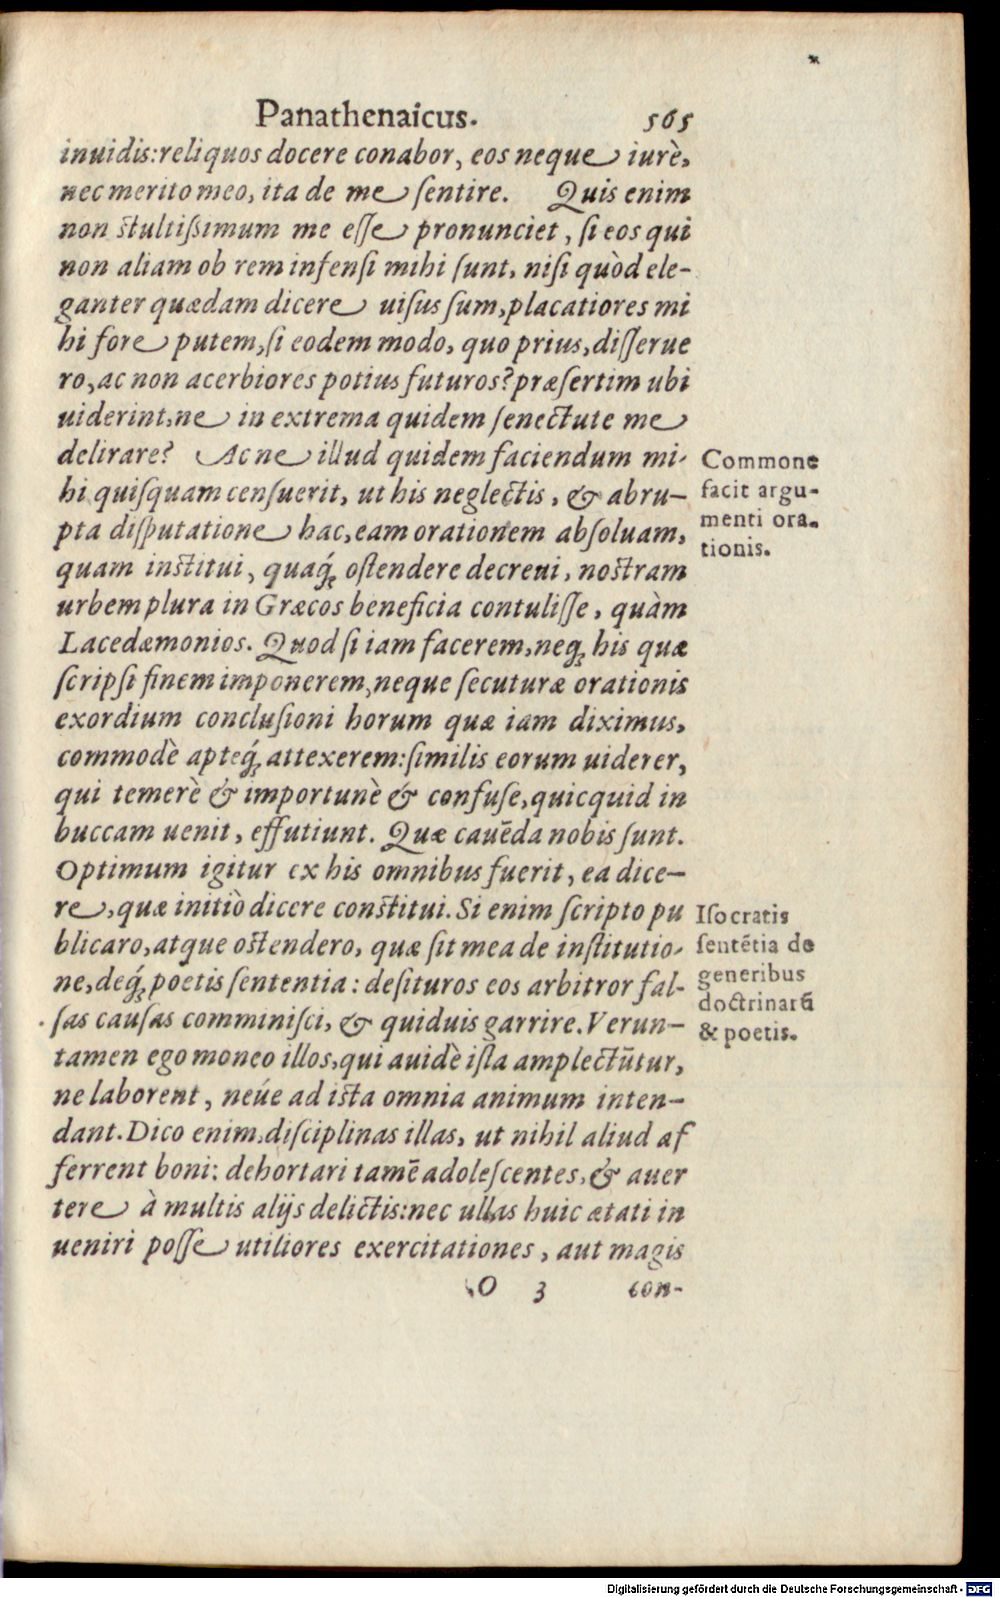 Panathenaicus. 565
inuidis:reliquos docere conabor, eos neque iurè,
nec merito meo, ita de me ſentire. Quis enim
non ſtultiſsimum me eſſe pronunciet, ſi eos qui
non aliam ob rem infenſi mihi ſunt, niſi quòd ele-
ganter quædam dicere uiſus ſum, placatiores mi
hi fore putem, ſi eodem modo, quo prius, diſſerue
ro, ac non acerbiores potius futuros? præſertim ubi
uiderint, ne in extrema quidem ſenectute me
delirare? Ac ne illud quidem faciendum mi-
hi quiſquam cenſuerit, ut his neglectis, & abru-
pta diſputatione hac, eam orationem abſoluam,
quam inſtitui, quaq́; oſtendere decreui, noſtram
urbem plura in Græcos beneficia contuliſſe, quàm
Lacedæmonios. Quod ſi iam facerem, neq; his quæ
ſcripſi finem imponerem, neque ſecuturæ orationis
exordium concluſioni horum quæ iam diximus,
commodè apteq́; attexerem: ſimilis eorum uiderer,
qui temerè & importunè & confuſe, quicquid in
buccam uenit, effutiunt. Quæ cauēda nobis ſunt.
Optimum igitur ex his omnibus fuerit, ea dice-
re, quæ initiò dicere conſtitui. Si enim ſcripto pu
blicaro, atque oſtendero, quæ ſit mea de inſtitutio-
ne, deq́; poetis ſententia: deſituros eos arbitror fal-
ſas cauſas comminiſci, & quiduis garrire. Verun-
tamen ego moneo illos, qui auidè iſta amplectūtur,
ne laborent, neúe ad iſta omnia animum inten-
dant. Dico enim, diſciplinas illas, ut nihil aliud af
ferrent boni: dehortari tamē adoleſcentes, & auer
tere à multis alijs delictis: nec ullas huic ætati in
ueniri poſſe utiliores exercitationes, aut magis
O 3 con-
Commone
facit argu-
menti ora-
tionis.
Iſocratis
ſentētia de
generibus
doctrinarū
& poetis.
Digitalisierung gefördert durch die Deutsche Forschungsgemeinschaft - DFG